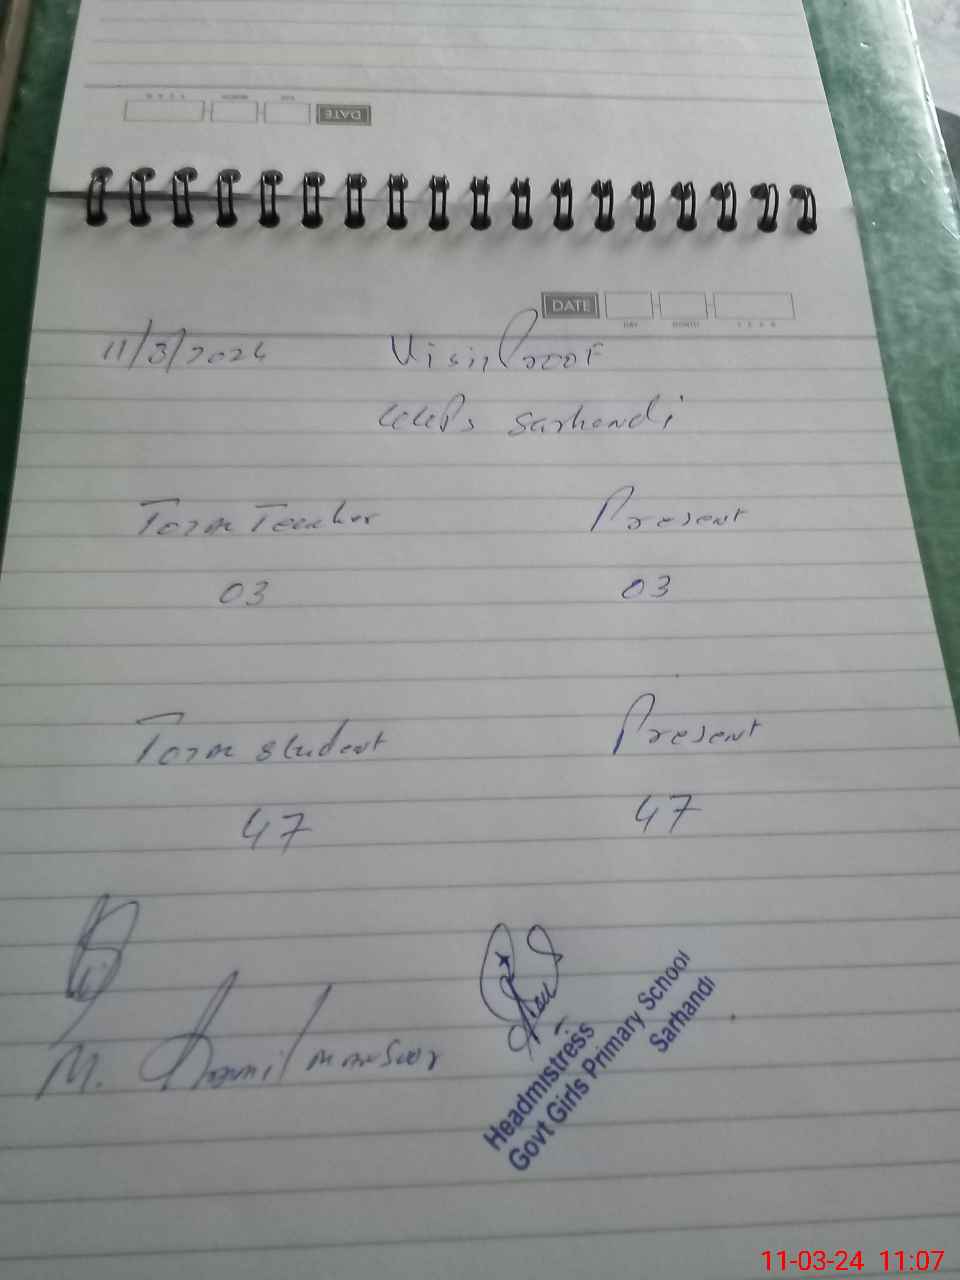 DATE
DAY MONTH YEAR
DATE
DAY MONTH YEAR
11/3/2024 Visit Proof
GGPS Sarhandi
Torm Teacher Present
03 03
Torm student Present
47 47
M. mansoor
Headmistress
Govt Girls Primary School
Sarhandi
11-03-24 11:07